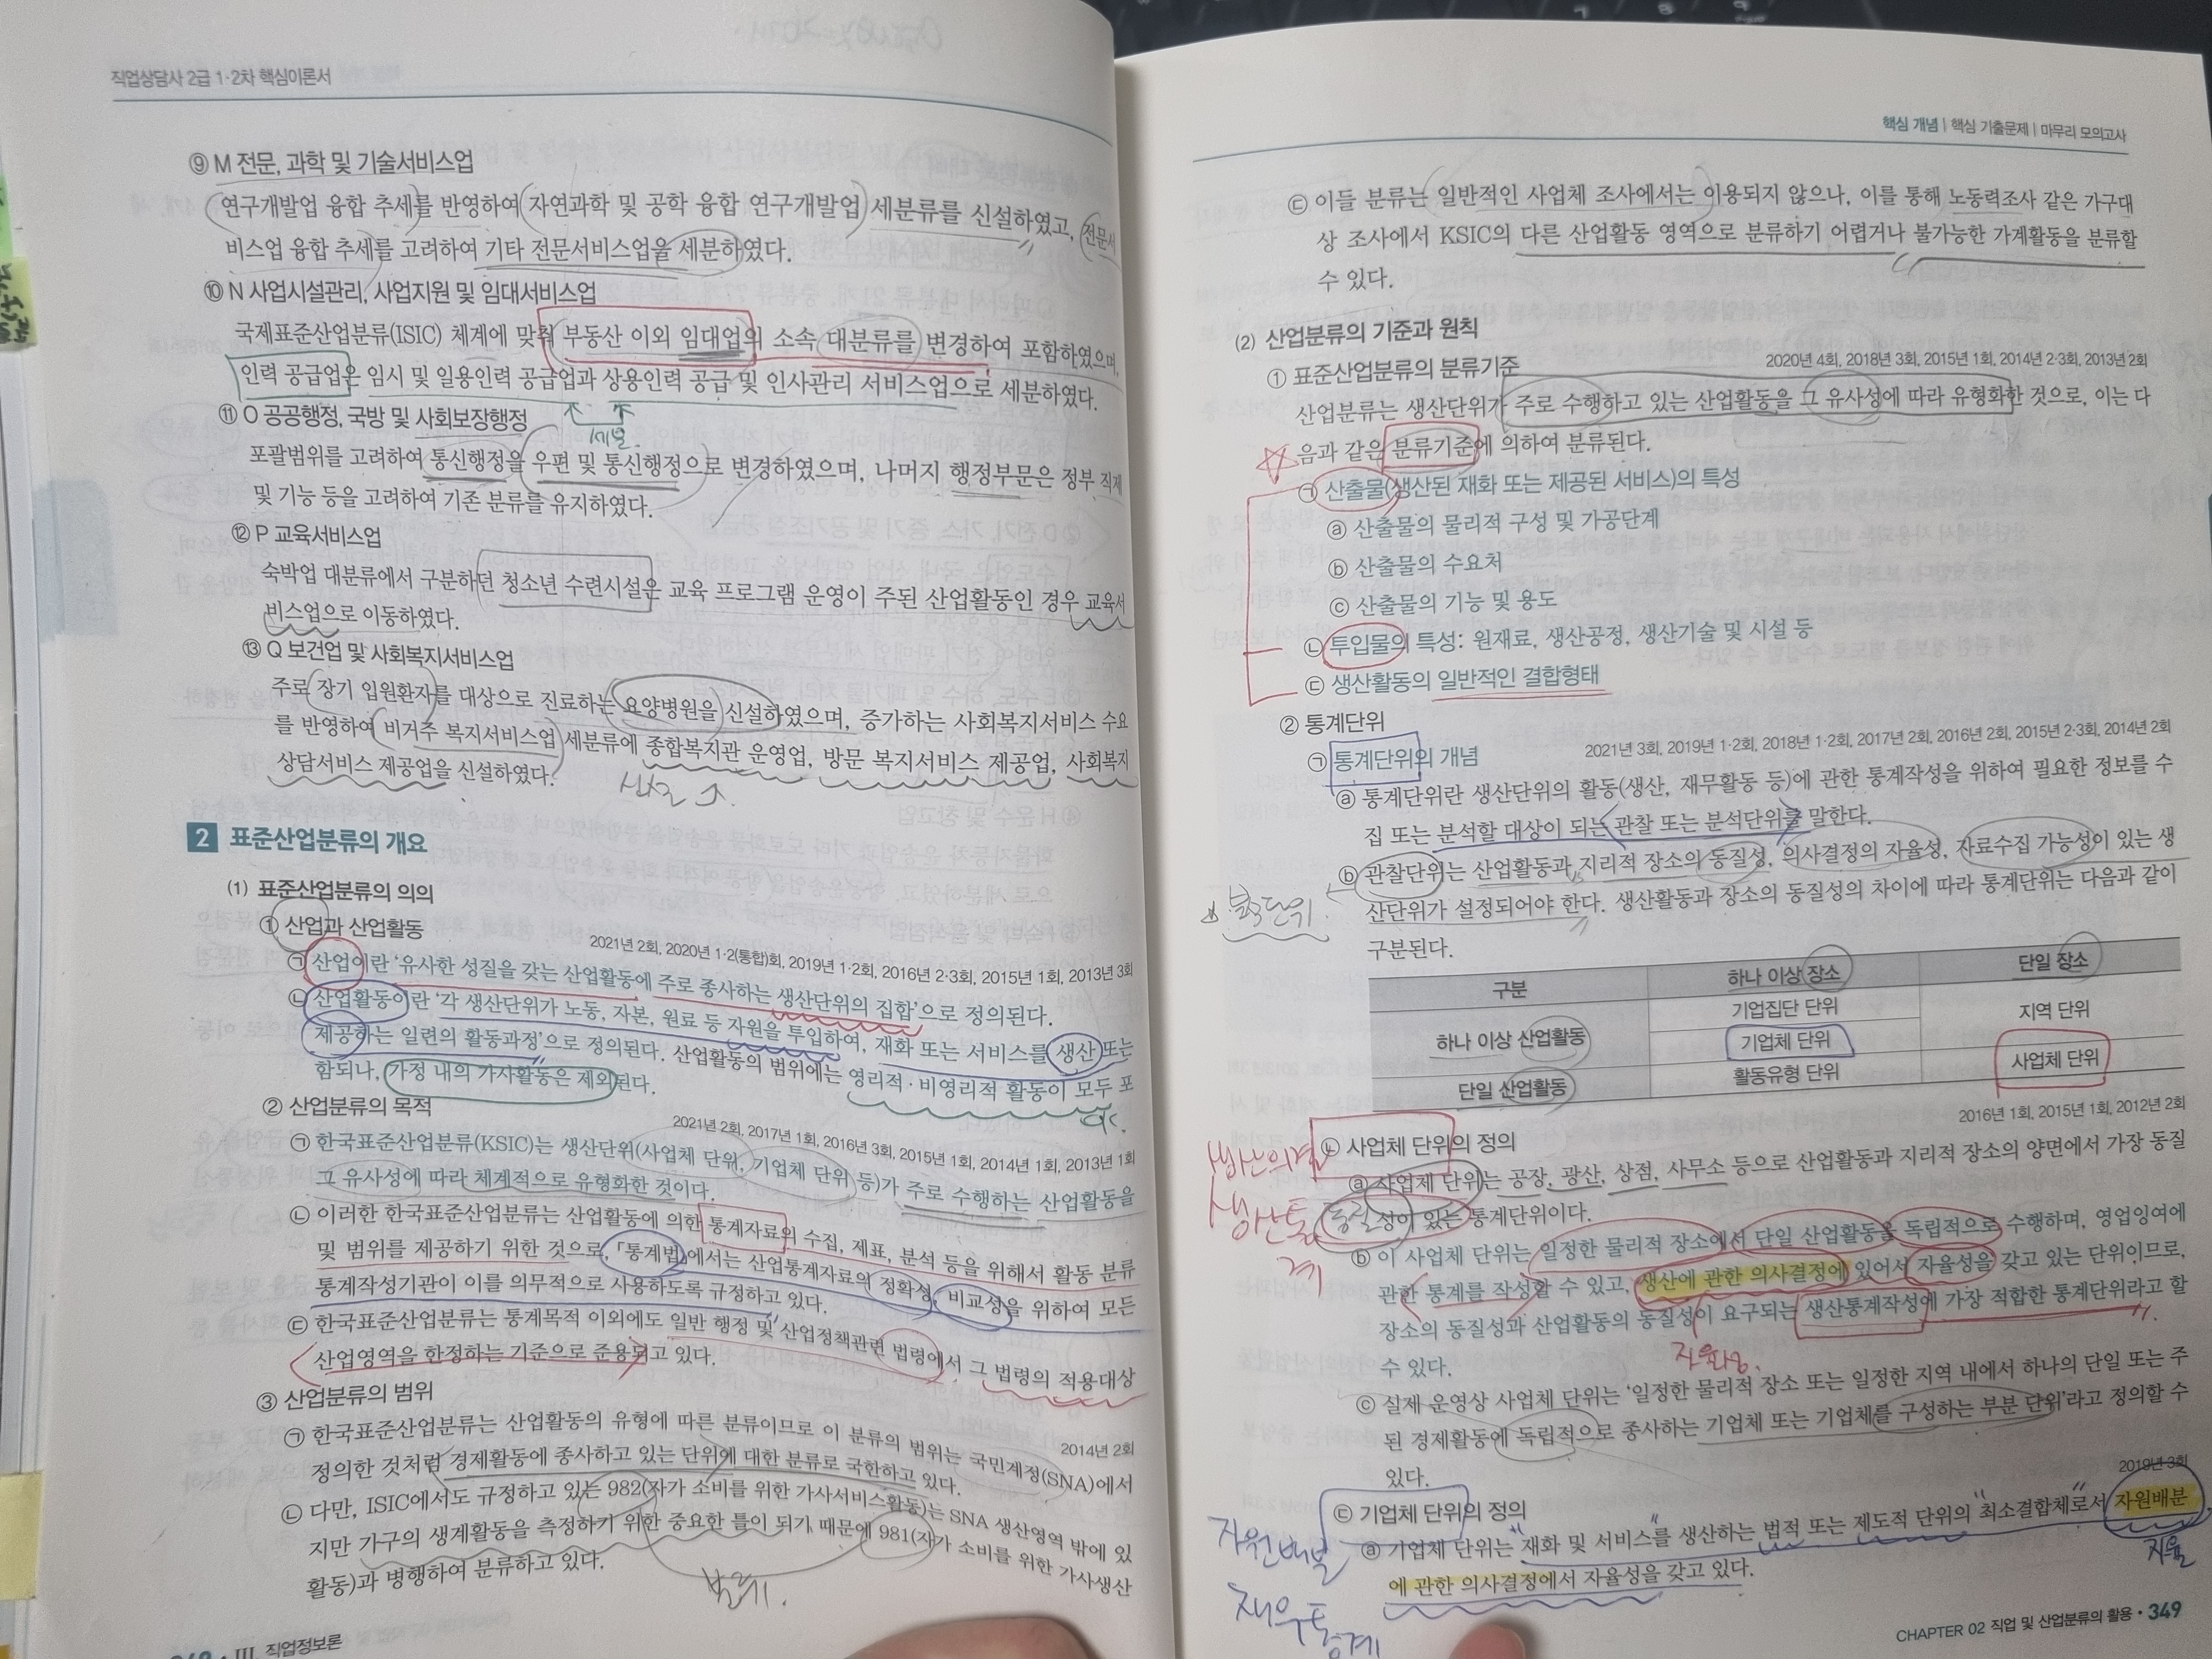 직업상담사 2급 1·2차 핵심이론서
⑨ M 전문, 과학 및 기술서비스업
연구개발업 융합 추세를 반영하여 자연과학 및 공학 융합 연구개발업 세분류를 신설하였고, 전문서
비스업 융합 추세를 고려하여 기타 전문서비스업을 세분하였다.
⑩ N 사업시설관리, 사업지원 및 임대서비스업
국제표준산업분류(ISIC) 체계에 맞춰 부동산 이외 임대업의 소속 대분류를 변경하여 포함하였으며,
인력 공급업은 임시 및 일용인력 공급업과 상용인력 공급 및 인사관리 서비스업으로 세분하였다.
세분.
⑪ O 공공행정, 국방 및 사회보장행정
포괄범위를 고려하여 통신행정을 우편 및 통신행정으로 변경하였으며, 나머지 행정부문은 정부 직제
및 기능 등을 고려하여 기존 분류를 유지하였다.
⑫ P 교육서비스업
숙박업 대분류에서 구분하던 청소년 수련시설은 교육 프로그램 운영이 주된 산업활동인 경우 교육서
비스업으로 이동하였다.
⑬ Q 보건업 및 사회복지서비스업
주로 장기 입원환자를 대상으로 진료하는 요양병원을 신설하였으며, 증가하는 사회복지서비스 수요
를 반영하여 비거주 복지서비스업 세분류에 종합복지관 운영업, 방문 복지서비스 제공업, 사회복지
상담서비스 제공업을 신설하였다.
신설 ↑.
2 표준산업분류의 개요
(1) 표준산업분류의 의의
① 산업과 산업활동
2021년 2회, 2020년 1·2(통합)회, 2019년 1·2회, 2016년 2·3회, 2015년 1회, 2013년 3회
㉠ 산업이란 ‘유사한 성질을 갖는 산업활동에 주로 종사하는 생산단위의 집합’으로 정의된다.
㉡ 산업활동이란 ‘각 생산단위가 노동, 자본, 원료 등 자원을 투입하여, 재화 또는 서비스를 생산 또는
제공하는 일련의 활동과정’으로 정의된다. 산업활동의 범위에는 영리적·비영리적 활동이 모두 포
함되나, 가정 내의 가사활동은 제외된다.
② 산업분류의 목적
2021년 2회, 2017년 1회, 2016년 3회, 2015년 1회, 2014년 1회, 2013년 1회
㉠ 한국표준산업분류(KSIC)는 생산단위(사업체 단위, 기업체 단위 등)가 주로 수행하는 산업활동을
그 유사성에 따라 체계적으로 유형화한 것이다.
㉡ 이러한 한국표준산업분류는 산업활동에 의한 통계자료의 수집, 제표, 분석 등을 위해서 활동 분류
및 범위를 제공하기 위한 것으로, 「통계법」에서는 산업통계자료의 정확성, 비교성을 위하여 모든
통계작성기관이 이를 의무적으로 사용하도록 규정하고 있다.
㉢ 한국표준산업분류는 통계목적 이외에도 일반 행정 및 산업정책관련 법령에서 그 법령의 적용대상
산업영역을 한정하는 기준으로 준용되고 있다.
③ 산업분류의 범위
2014년 2회
㉠ 한국표준산업분류는 산업활동의 유형에 따른 분류이므로 이 분류의 범위는 국민계정(SNA)에서
정의한 것처럼 경제활동에 종사하고 있는 단위에 대한 분류로 국한하고 있다.
㉡ 다만, ISIC에서도 규정하고 있는 982(자가 소비를 위한 가사서비스활동)는 SNA 생산영역 밖에 있
지만 가구의 생계활동을 측정하기 위한 중요한 틀이 되기 때문에 981(자가 소비를 위한 가사생산
활동)과 병행하여 분류하고 있다.
III. 직업정보론
핵심 개념 | 핵심 기출문제 | 마무리 모의고사
㉢ 이들 분류는 일반적인 사업체 조사에서는 이용되지 않으나, 이를 통해 노동력조사 같은 가구대
상 조사에서 KSIC의 다른 산업활동 영역으로 분류하기 어렵거나 불가능한 가계활동을 분류할
수 있다.
(2) 산업분류의 기준과 원칙
① 표준산업분류의 분류기준
2020년 4회, 2018년 3회, 2015년 1회, 2014년 2·3회, 2013년 2회
산업분류는 생산단위가 주로 수행하고 있는 산업활동을 그 유사성에 따라 유형화한 것으로, 이는 다
음과 같은 분류기준에 의하여 분류된다.
㉠ 산출물(생산된 재화 또는 제공된 서비스)의 특성
ⓐ 산출물의 물리적 구성 및 가공단계
ⓑ 산출물의 수요처
ⓒ 산출물의 기능 및 용도
㉡ 투입물의 특성: 원재료, 생산공정, 생산기술 및 시설 등
㉢ 생산활동의 일반적인 결합형태
② 통계단위
㉠ 통계단위의 개념
2021년 3회, 2019년 1·2회, 2018년 1·2회, 2017년 2회, 2016년 2회, 2015년 2·3회, 2014년 2회
ⓐ 통계단위란 생산단위의 활동(생산, 재무활동 등)에 관한 통계작성을 위하여 필요한 정보를 수
집 또는 분석할 대상이 되는 관찰 또는 분석단위를 말한다.
ⓑ 관찰단위는 산업활동과 지리적 장소의 동질성, 의사결정의 자율성, 자료수집 가능성이 있는 생
산단위가 설정되어야 한다. 생산활동과 장소의 동질성의 차이에 따라 통계단위는 다음과 같이
구분된다.
분석단위.
구분 하나 이상 장소 단일 장소
하나 이상 산업활동 기업집단 단위 지역 단위
기업체 단위
단일 산업활동 활동유형 단위 사업체 단위
2016년 1회, 2015년 1회, 2012년 2회
㉡ 사업체 단위의 정의
ⓐ 사업체 단위는 공장, 광산, 상점, 사무소 등으로 산업활동과 지리적 장소의 양면에서 가장 동질
성이 있는 통계단위이다.
생산의결
생산통계
ⓑ 이 사업체 단위는 일정한 물리적 장소에서 단일 산업활동을 독립적으로 수행하며, 영업잉여에
관한 통계를 작성할 수 있고, 생산에 관한 의사결정에 있어서 자율성을 갖고 있는 단위이므로,
장소의 동질성과 산업활동의 동질성이 요구되는 생산통계작성에 가장 적합한 통계단위라고 할
수 있다.
자율성.
ⓒ 실제 운영상 사업체 단위는 ‘일정한 물리적 장소 또는 일정한 지역 내에서 하나의 단일 또는 주
된 경제활동에 독립적으로 종사하는 기업체 또는 기업체를 구성하는 부분 단위’라고 정의할 수
있다.
2019년 3회
㉢ 기업체 단위의 정의
ⓐ 기업체 단위는 재화 및 서비스를 생산하는 법적 또는 제도적 단위의 최소결합체로서 자원배분
에 관한 의사결정에서 자율성을 갖고 있다.
자율
자원배분
재무통계
CHAPTER 02 직업 및 산업분류의 활용 · 349